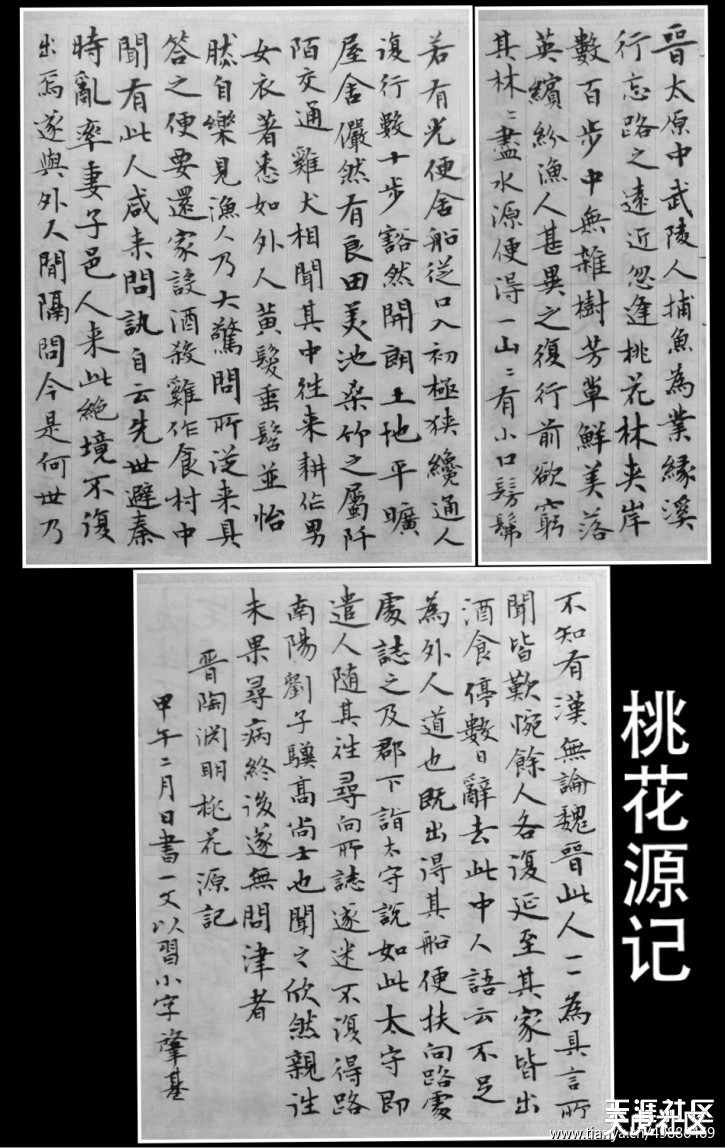 晉太原中武陵人捕魚為業緣溪
行忘路之遠近忽逢桃花林夹岸
數百步中無雜樹芳草鮮美落
英繽紛漁人甚異之復行前欲窮
其林〻盡水源便得一山〻有小口髣髴
若有光便舍船從口入初極狹纔通人
復行數十步豁然開朗土地平曠
屋舍儼然有良田美池桑竹之屬阡
陌交通雞犬相聞其中往来耕作男
女衣著悉如外人黃髮垂髫並怡
然自樂見漁人乃大驚問所從来具
答之便要還家設酒殺雞作食村中
聞有此人咸来問訊自云先世避秦
時亂率妻子邑人来此絕境不復
出焉遂與外人間隔問今是何世乃
不知有漢無論魏晉此人一一為具言所
聞皆歎惋餘人各復延至其家皆出
酒食停數日辭去此中人語云不足
為外人道也既出得其船便扶向路處
處誌之及郡下詣太守說如此太守即
遣人随其往尋向所誌遂迷不復得路
南陽劉子驥高尚士也聞之欣然親往
未果尋病終後遂無問津者
晉陶渊明桃花源記
甲午二月日書一文以習小字 肇基
桃花源记
天涯社区